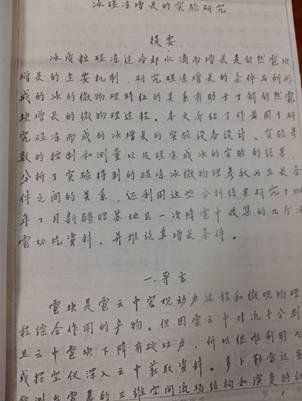 冰碰冻增长的实验研究
摘要
冰质粒碰冻过冷却水滴而增长是自然雹块
增长的主要机制，研究碰冻增长的条件与所形
成的冰的微物理特征的关系有助于了解自然雹
块增长的微物理过程。本文介绍了作者用于研
究碰冻而成的冰增长的实验设备设计、实验参
数的控制和测量以及碰冻成冰的实验的结果，
分析了实验得到的碰冻冰微物理参数与生长条
件之间的关系，还利用这些分析结果研究了
年7月新疆昭苏地区一次降雹中收集的几个冰
雹切片资料，并推设其增长条件。
一、导言
雹块是雹云中宏观动力过程和微观物理
程综合作用的产物。但因雹云中对流十分剧
且云中雹块下降有破坏力，所以很难利用飞
或探空仪深入云中获取资料。多卜勒雷达
探测出雹暴的三维空间流场结构和演变特征